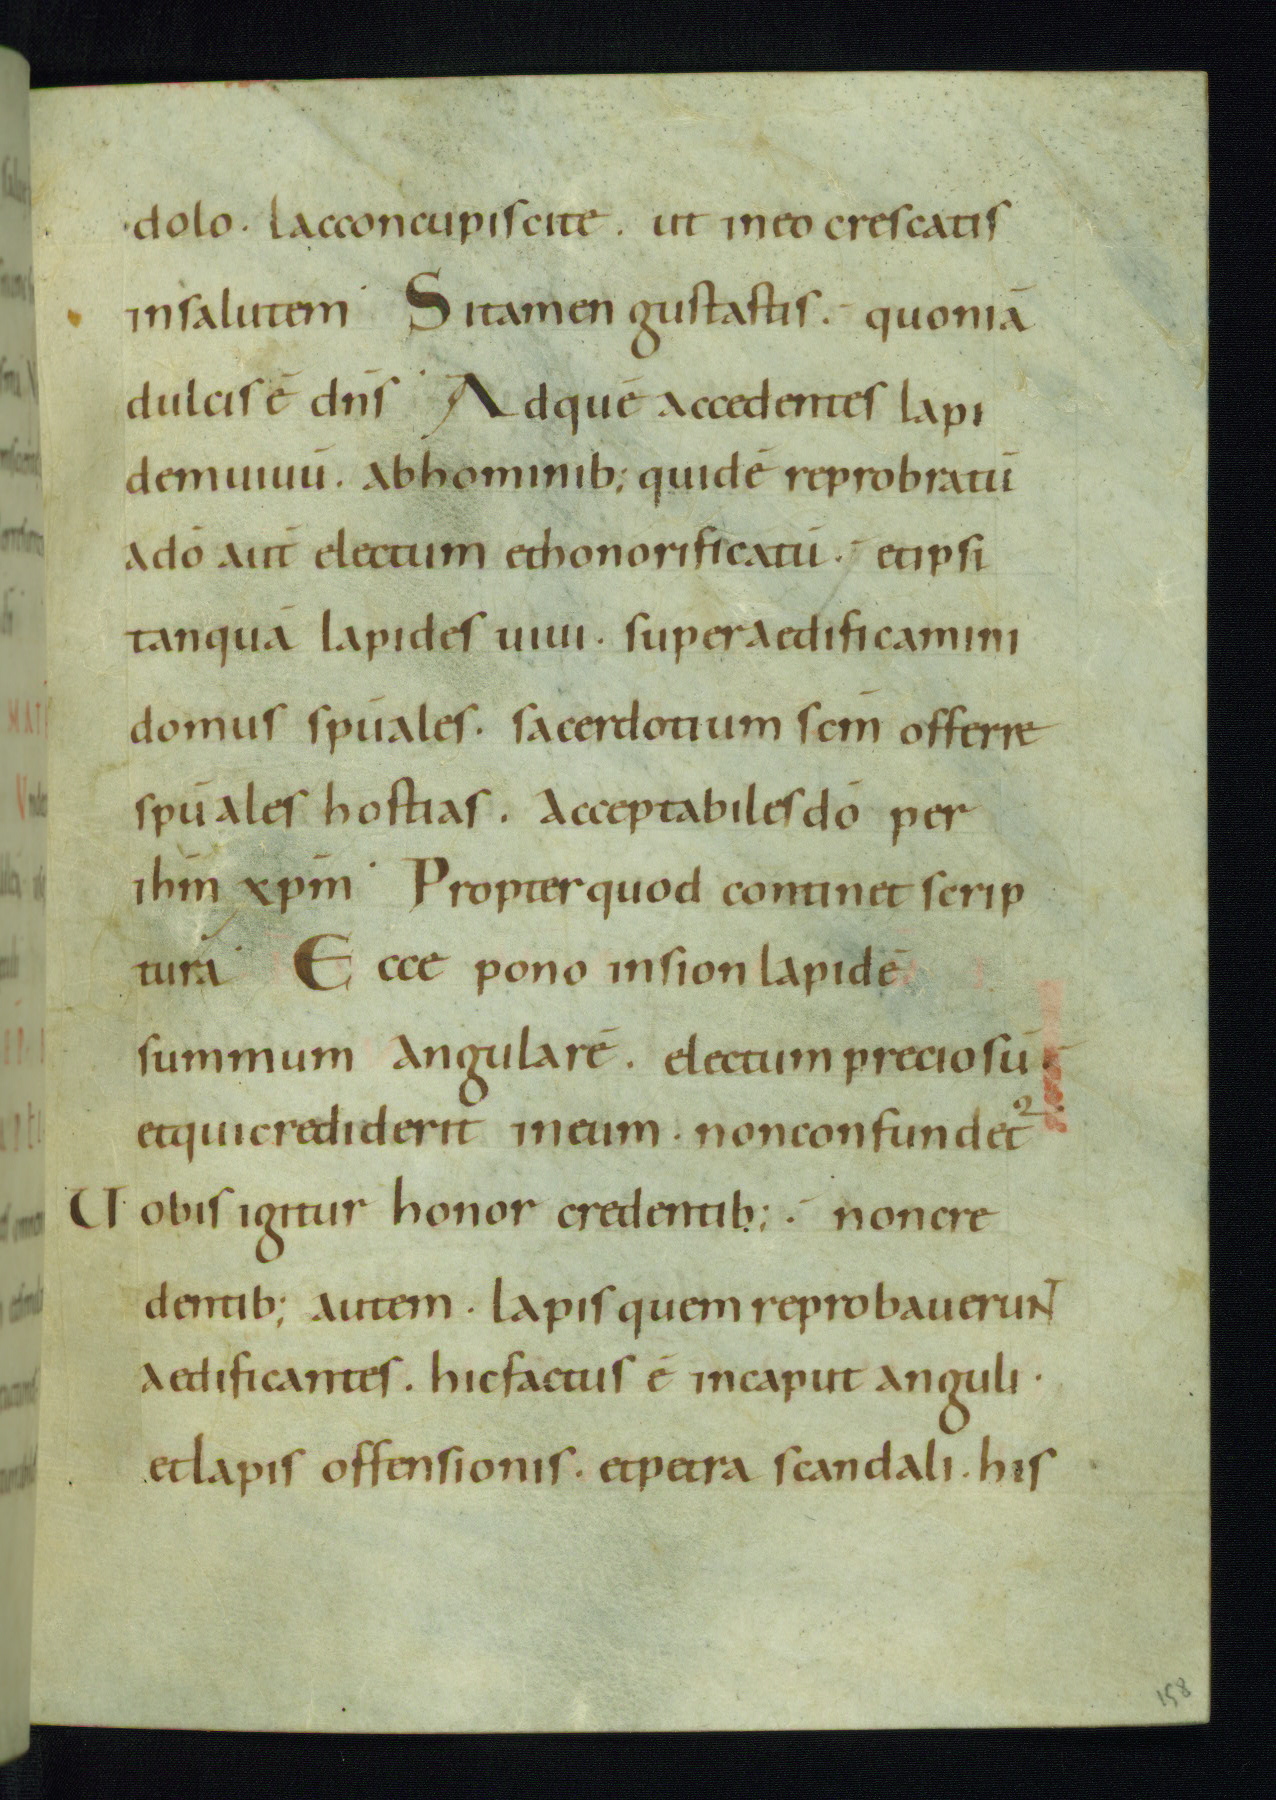 dolo. lacconcupiscite. ut ineo crescatis
insalutem· Sitamen gustastis. quoniā
dulcis ē dn̄s· Adquē accedentes lapi
demuiuū. abhominib; quidē reprobratū
adō aut̄ electum ethonorificatū. etipsi
tanquā lapides uiui. superaedificamini
domus sp̄uales. sacerdotium scm̄ offerre
sp̄uales hostias. acceptabilesdō per
ihm̄ xpm̄· Propterquod continet scrip
turā· Ecce pono insion lapidē
summum angularē. electum preciosū.
etquicrediderit ineum. nonconfundet᷑
Uobis igitur honor credentib;. noncre
dentib; autem. lapis quem reprobauerunt
aedificantes. hicfactus ē incaput anguli.
etlapis offensionis. etpetra scandali. his
158